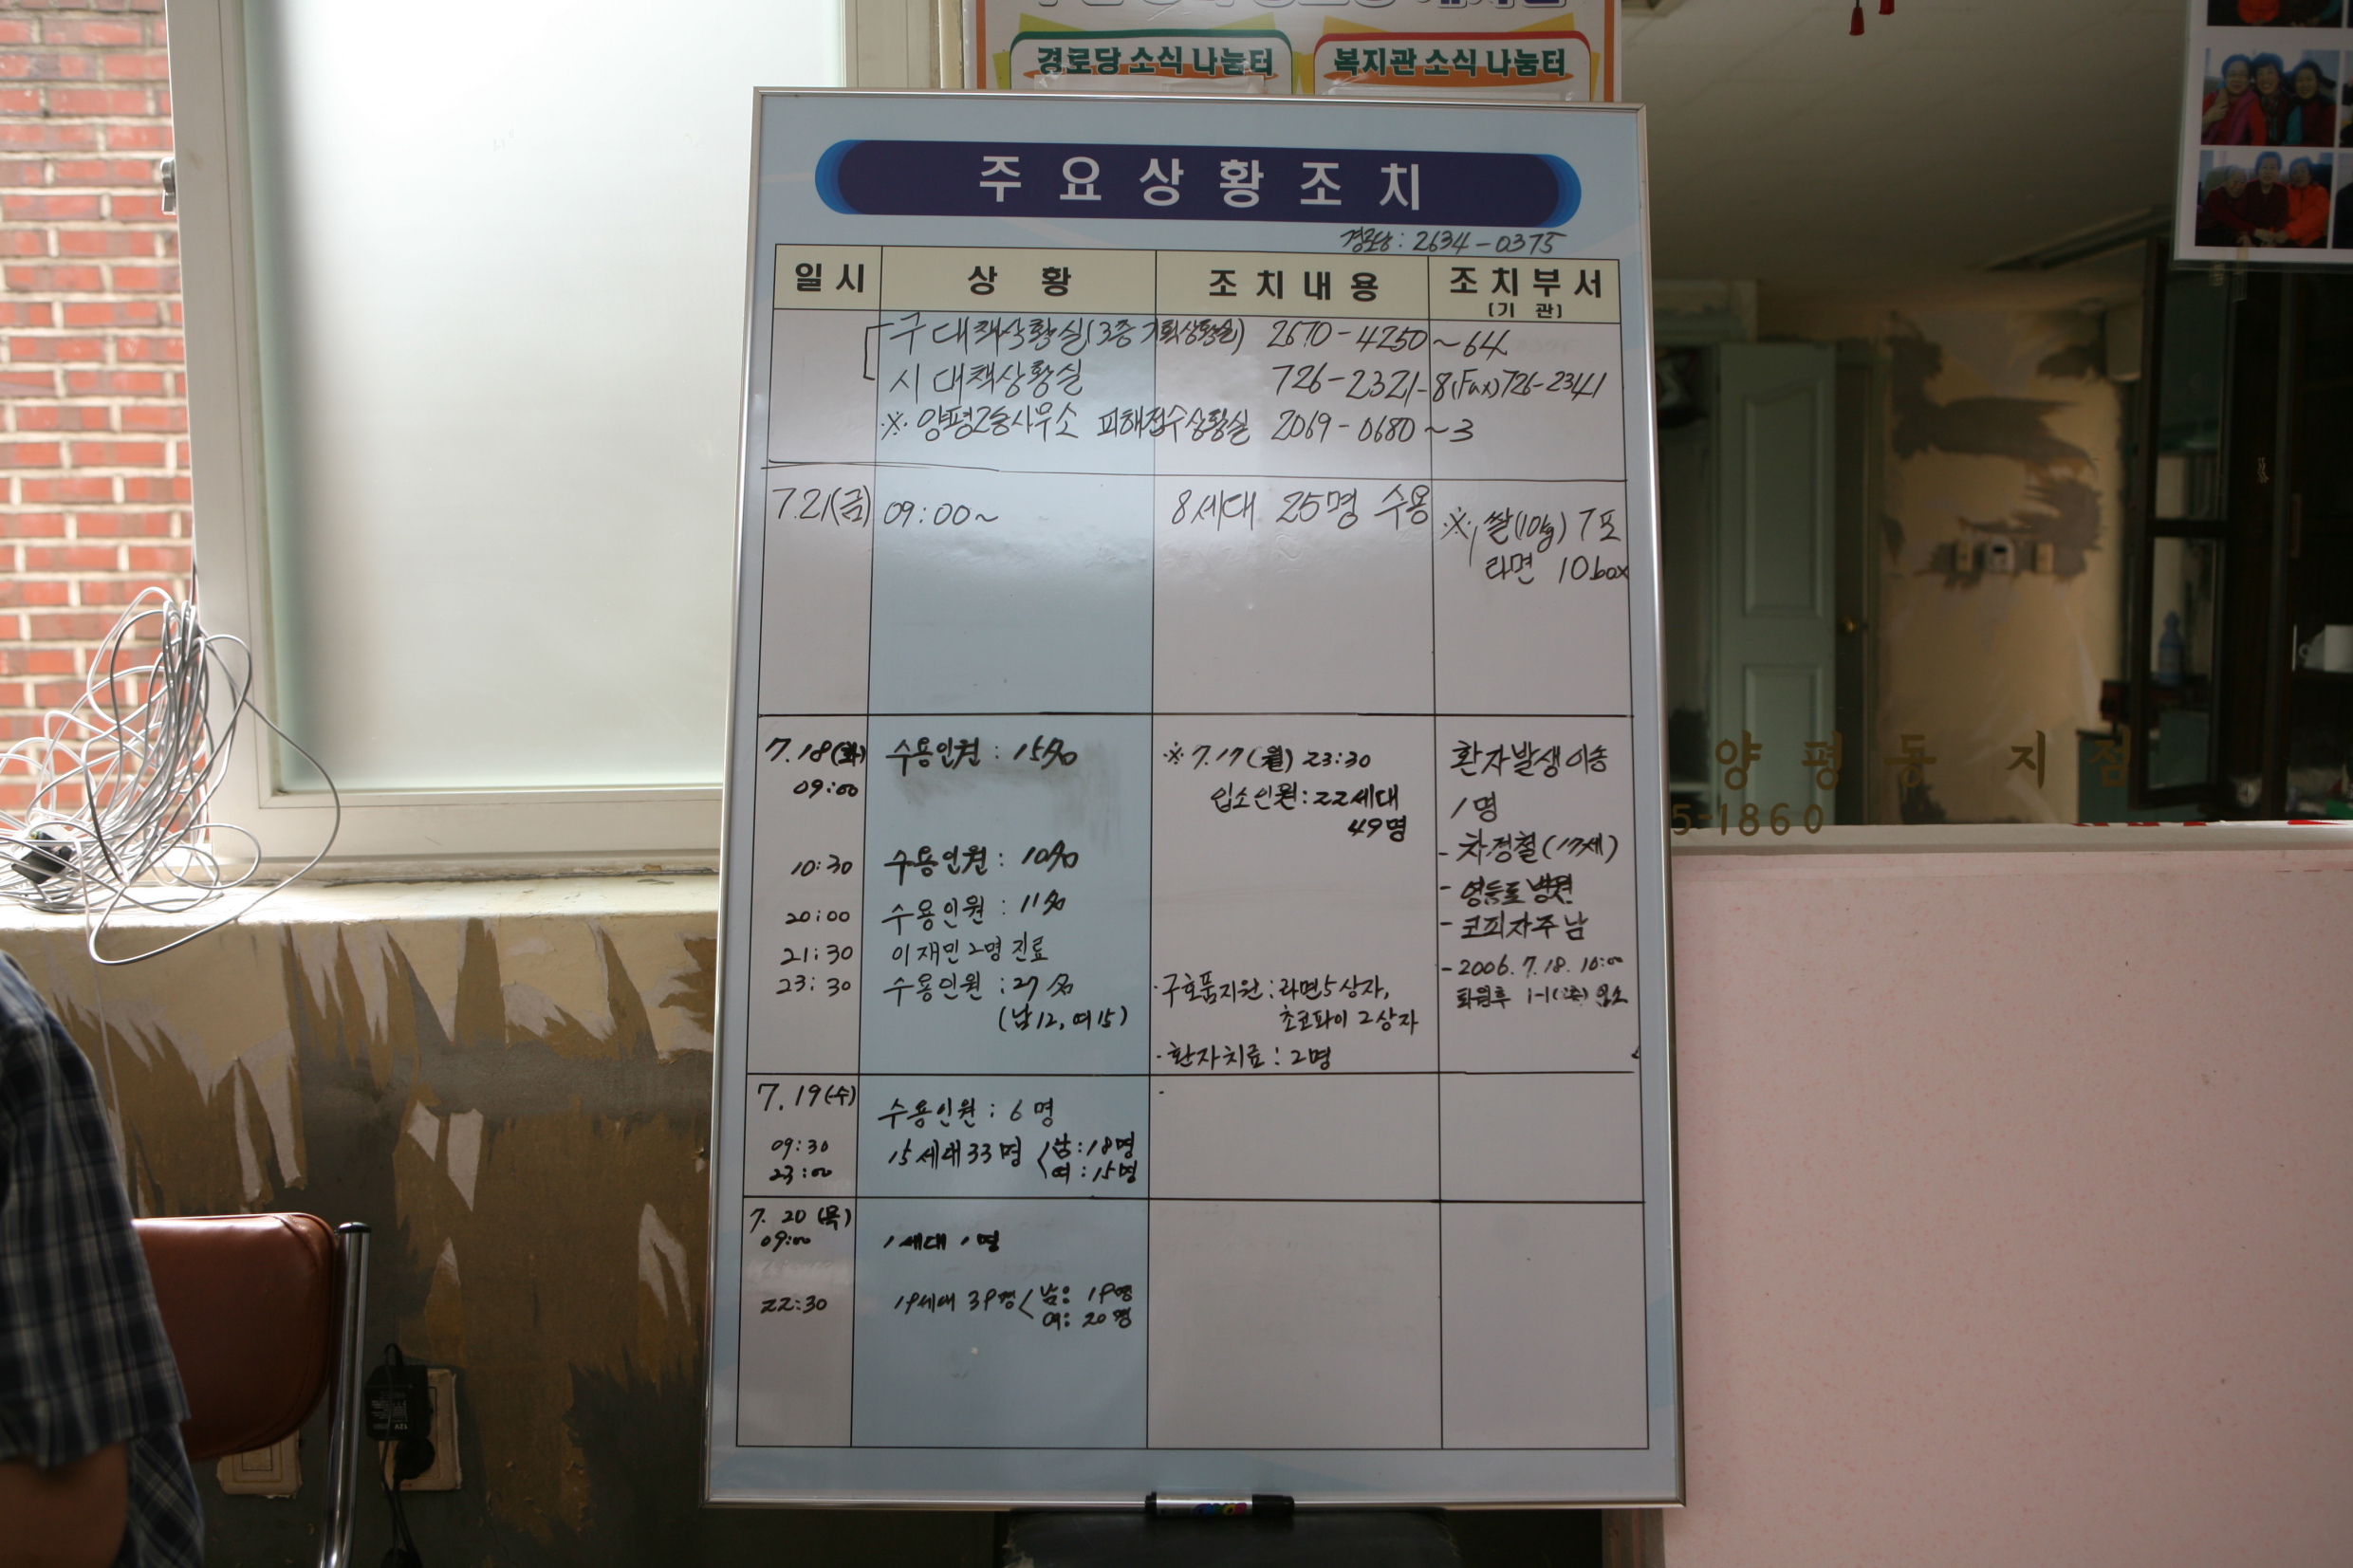 경로당 소식 나눔터
복지관 소식 나눔터
주요상황조치
경로당: 2634-0375
일시 상 황 조치내용 조치부서
(기 관)
구 대책상황실(3층 기획상황실) 2670-4250~64
시 대책상황실 726-2321-8(Fax)726-2341
※ 양평2동사무소 피해접수상황실 2069-0680~3
7.21(금) 09:00~ 8세대 25명 수용 ※ 쌀(10kg) 7포
라면 10box
7.18(화) 수용인원: 15名 ※ 7.17(월) 23:30 환자발생이송
09:00 입소인원: 22세대 1명
49명
10:30 수용인원: 10名 - 차정철(17세)
20:00 수용인원: 11名 - 영등포병원
21:30 이재민 2명 진료 - 코피자주남
23:30 수용인원: 27名 · 구호품지원: 라면5상자, - 2006. 7. 18. 10:00
(남12, 여15) 초코파이 2상자
· 환자치료: 2명
7.19(수) 수용인원: 6명
09:30 15세대 33명 남: 18명
23:00 여: 15명
7. 20 (목)
09:00 1세대 1명
22:30 19세대 39명 남: 19명
여: 20명
양평동지점
5-1860